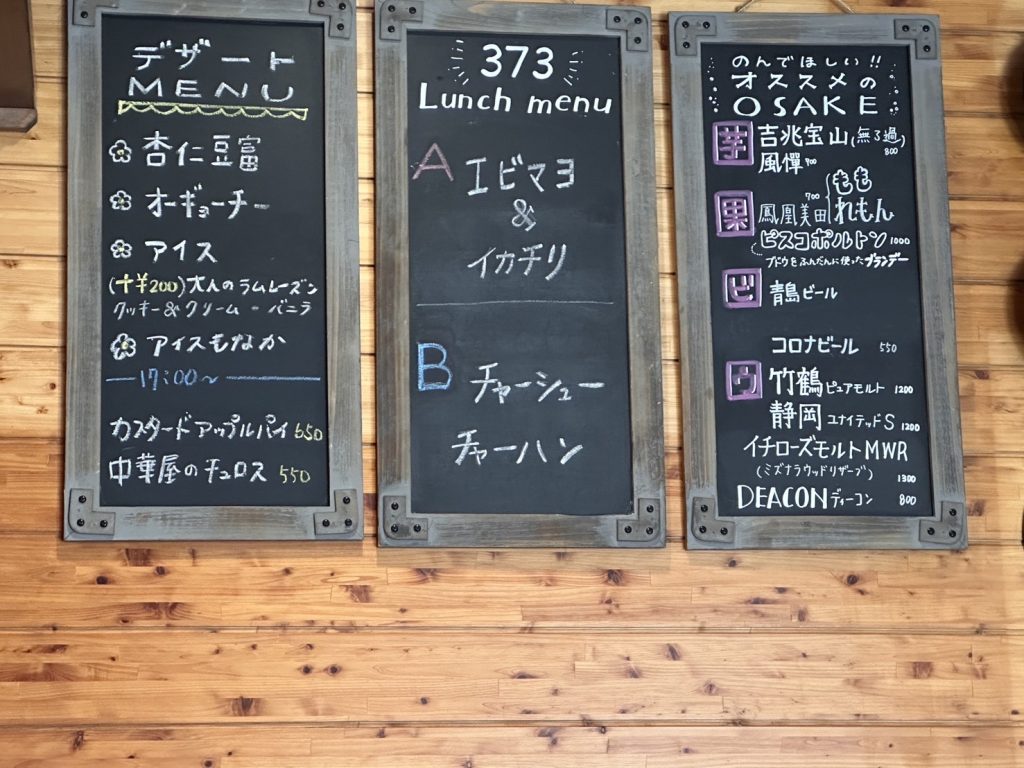 デザート
MENU
杏仁豆富
オーギョーチー
アイス
(+¥200)大人のラムレーズン
クッキー&クリーム・バニラ
アイスもなか
17:00〜
カスタードアップルパイ 550
中華屋のチュロス 550
373
Lunch menu
A エビマヨ
&
イカチリ
B チャーシュー
チャーハン
のんでほしい!!
オススメの
OSAKE
芋 吉兆宝山(無ろ過) 800
風憚 700
果 鳳凰美田 700 もも
れもん
ピスコポルトン 1000
ブドウをふんだんに使ったブランデー
ビ 青島ビール
コロナビール 550
ウ 竹鶴 ピュアモルト 1200
静岡 ユナイテッドS 1200
イチローズモルトMWR
(ミズナラウッドリザーブ) 1300
DEACON ディーコン 800